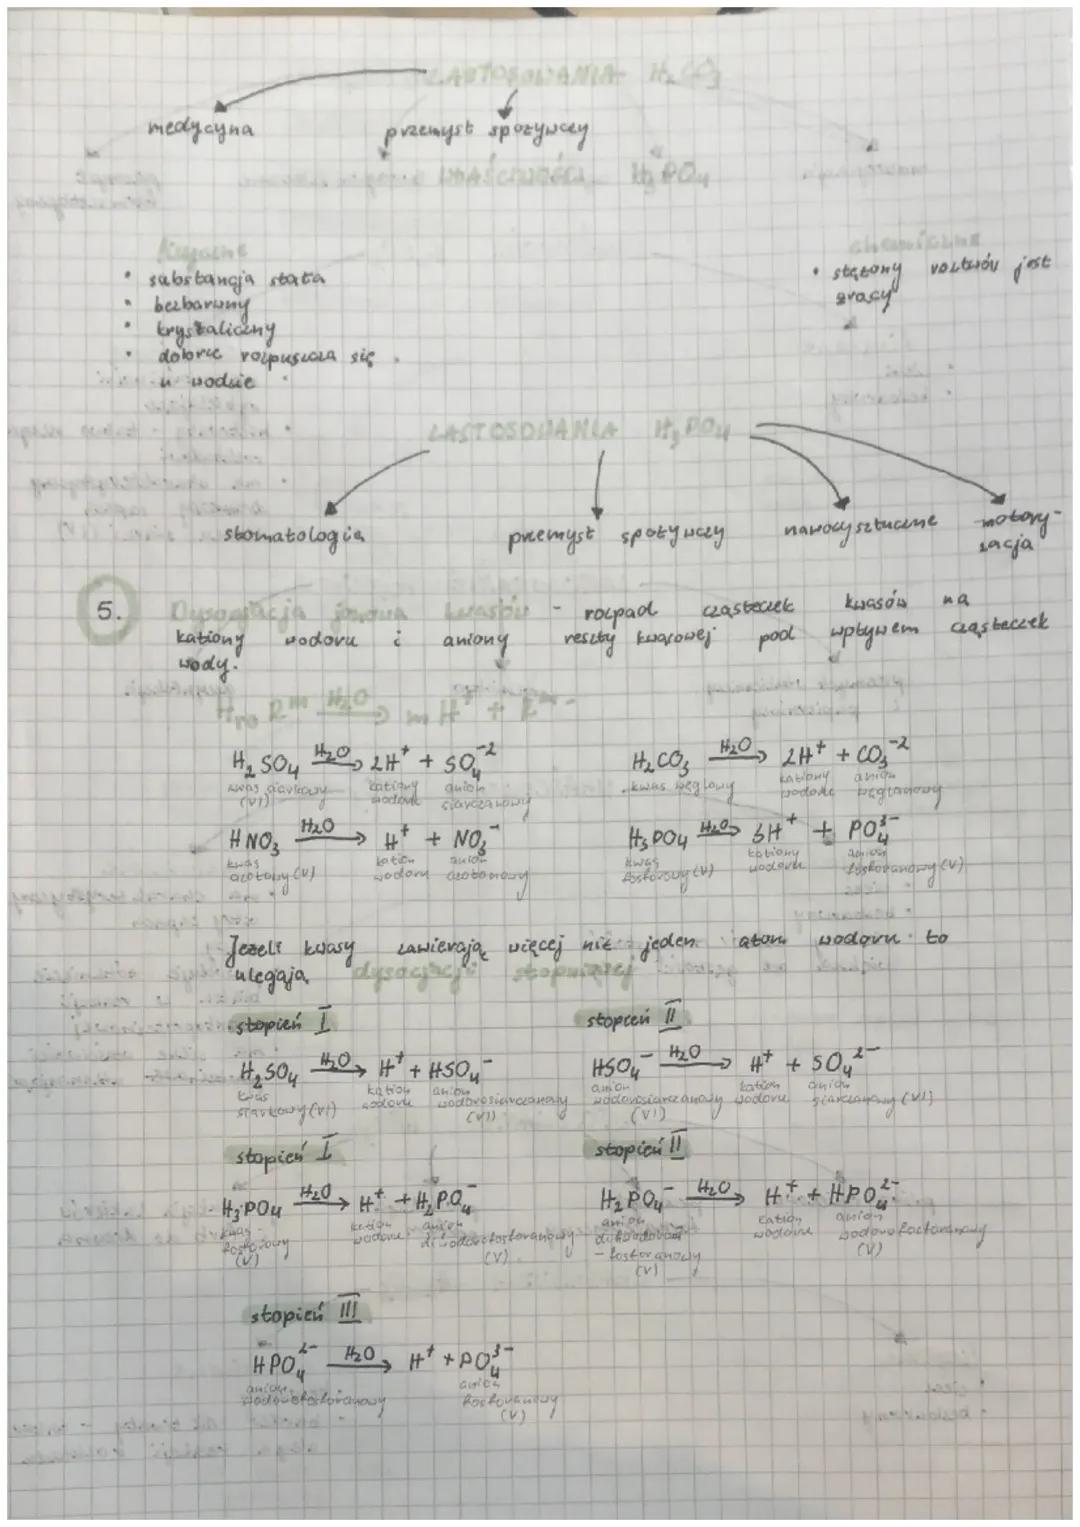 ZASTOSOWANIA H₂CO₃
medycyna przemysł spożywczy
WŁAŚCIWOŚCI H₃PO₄
fizyczne chemiczne
• substancja stała
• bezbarwny
• krystaliczny
• dobrze rozpuszcza się
w wodzie
• stężony roztwór jest
żrący
ZASTOSOWANIA H₃PO₄
stomatologia przemysł spożywczy nawozy sztuczne motory-
zacja
5. Dysocjacja jonowa kwasów - rozpad cząsteczek kwasów na
kationy wodoru i aniony reszty kwasowej pod wpływem cząsteczek
wody.
H₂SO₄ H₂O→ 2H⁺ + SO₄⁻²
kwas siarkowy (VI) kationy wodoru anion siarczanowy
H₂CO₃ H₂O→ 2H⁺ + CO₃⁻²
kwas węglowy kationy wodoru anion węglanowy
HNO₃ H₂O→ H⁺ + NO₃⁻
kwas azotowy (V) kation wodoru anion azotanowy
H₃PO₄ H₂O→ 3H⁺ + PO₄³⁻
kwas fosforowy (V) kationy wodoru anion fosforanowy (V)
Jeżeli kwasy zawierają więcej niż jeden atom wodoru to
ulegają dysocjacji stopniowej
stopień I stopień II
H₂SO₄ H₂O→ H⁺ + HSO₄⁻
kwas siarkowy (VI) kation wodoru anion wodorosiarczanowy (VI)
HSO₄⁻ H₂O→ H⁺ + SO₄²⁻
anion wodorosiarczanowy (VI) kation wodoru anion siarczanowy (VI)
stopień I stopień II
H₃PO₄ H₂O→ H⁺ + H₂PO₄⁻
kwas fosforowy (V) kation wodoru anion diwodorofosforanowy (V)
H₂PO₄⁻ H₂O→ H⁺ + HPO₄²⁻
anion diwodoro - fosforanowy (V) kation wodoru anion wodorofosforanowy (V)
stopień III
HPO₄²⁻ H₂O→ H⁺ + PO₄³⁻
anion wodorofosforanowy anion fosforanowy (V)